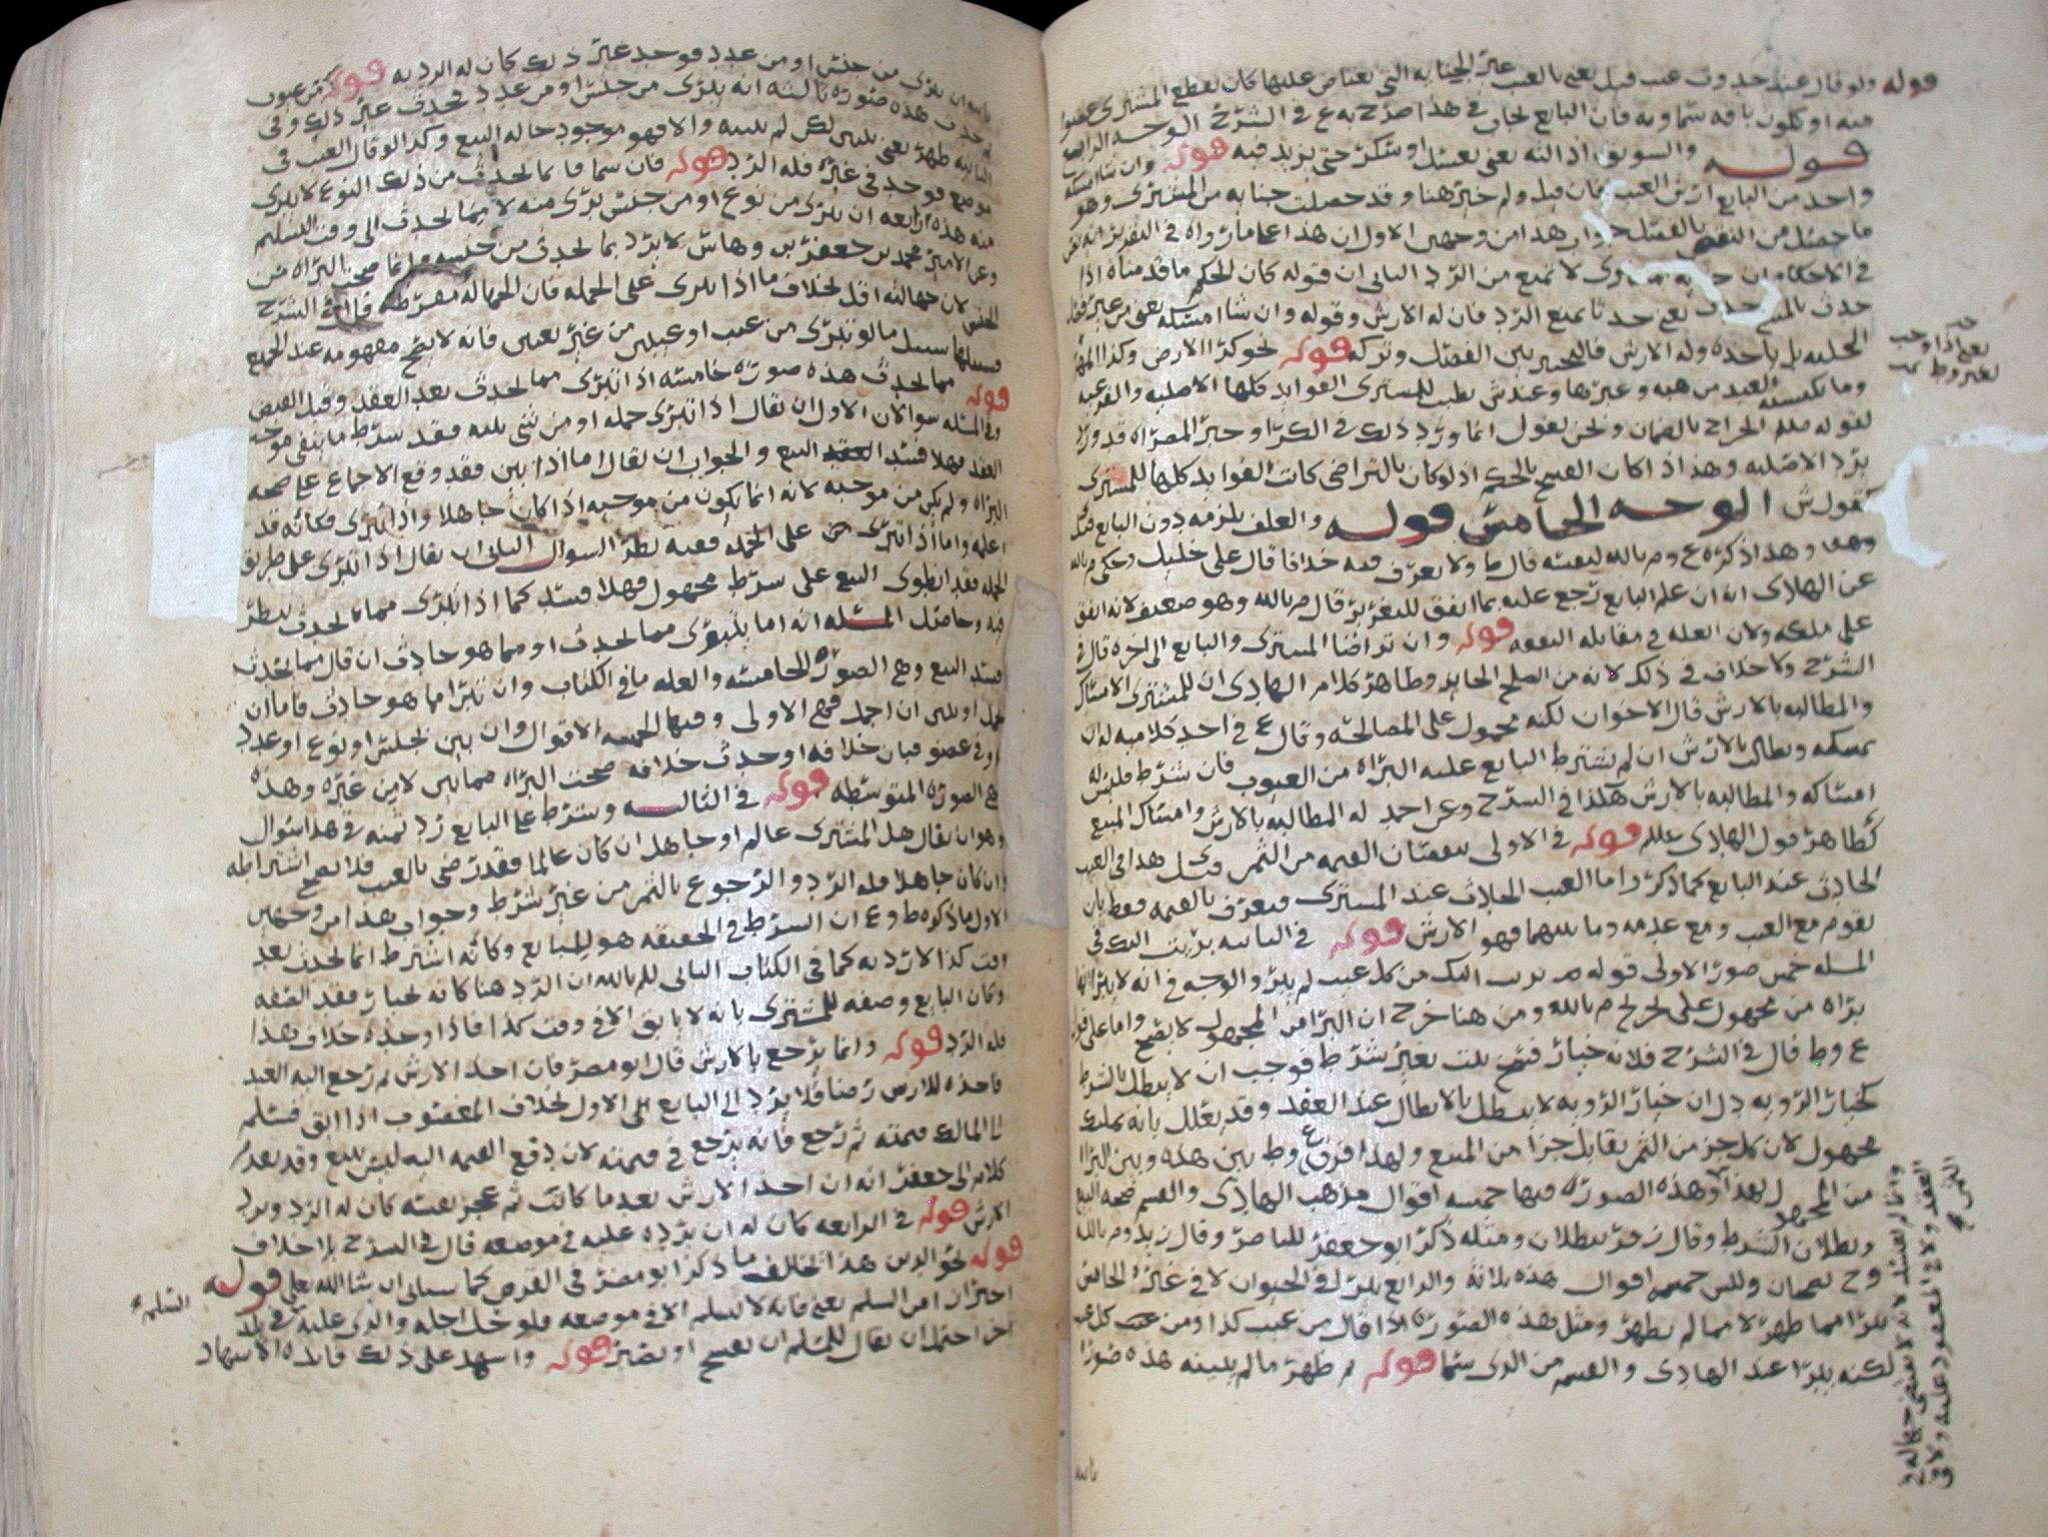 قوله ولو قال عند حدوث عيب قبل يعني بالعيب غير الجنايه التي يعتاض عليها كان يقطع المشتري عضوا
منه او تكون بافه سماويه فان البايع في هذا صرح به ع في الشرح الوجه الرابع
قوله والسويق اذا لته يعني بعسل او سكر حتى يزيد فيه قوله وان شا امسكه
واخذ من البايع ارش العيب فان قيل ولم خير هنا وقد حصلت جنايه من المشتري وهو
ما حصل من النقص بالفصل هذا من وجهين الاول ان هذا على ما رواه في التقرير
في الاحكام ان لا تمنع من الرد الثاني ان قوله كان الحكم ما قدمناه اذا
حدث بالمبيع حدث يعني حدثا يمنع الرد فان له الارش وقوله وان شا امسكه يعني من غير
الحليه بل ياخذه وله الارش فالتخيير بين الفصل وتركه قوله نحو كرا الارض وكذا المهر
وما يكسبه العبد من هبه وغيرها وعند ش يطيب للمشتري الفوايد كلها الاصليه والفرعيه
لقوله صلعم الخراج بالضمان ونحن نقول انما ورد ذلك في الكرا وخبر المصراه قد ورد
برد الاصليه وهذا اذا كان الفسخ بالحكم اذ لو كان بالتراضي كانت الفوايد كلها للمشتري
كقول ش الوجه الخامس قوله والعلف يلزمه دون البايع
وهذا ذكره ع وم بالله لنفسه قال ط ولا يعرف فيه خلافا قال علي خليل وحكى م بالله
عن الهادي انه ان علم البايع رجع عليه بما انفق للتغرير قال م بالله وهو ضعيف لانه انفق
على ملكه ولان الغله في مقابله النفقه قوله وان تراضا المشتري والبايع الى اخره قال في
الشرح ولا خلاف في ذلك لانه من الصلح الجايز وظاهر كلام الهادي ان للمشتري الامساك
والمطالبه بالارش قال الاخوان لكنه محمول على المصالحه وقال ع في احد كلاميه له ان
يمسكه ويطالب بالارش ان لم يشترط البايع عليه البراه من العيوب فان شرط فليس له
امساكه والمطالبه بالارش هكذا في الشرح وعن احمد له المطالبه بالارش وامساك المبيع
كظاهر قول الهادي علم قوله في الاولى بنقصان القيمه من الثمن وقيل هذا في العيب
الحادث عند البايع كما ذكر واما العيب الحادث عند المشتري فيعرف بالقيمه فقط بان
يقوم مع العيب ومع عدمه وما بينهما فهو الارش قوله في الثانيه بريت اليك في
المسله خمس صور الاولى قوله بريت اليك من كل عيب لم يبرا والوجه في انه لا يبرا انها
براه من مجهول على تخريج م بالله ومن هنا خرج ان البرا من المجهول لا يصح واما على قول
ع وط قال في الشرح فلانه خيار فسخ يثبت بغير شرط فوجب ان لا يبطل بالشرط
كخيار الرويه دل ان خيار الرويه لا يبطل بالابطال عند العقد وقد يعلل بانه تمليك
مجهول لان كل جز من الثمن يقابل جزا من المبيع ولهذا فرق ع وط بين هذه وبين البرا
من المجهول لهذا وهذه الصوره فيها خمسه اقوال مذهب الهادي والقسم صحه البيع
وبطلان الشرط وقال زفر يبطلان ومثله ذكر ابو جعفر للناصر وقال زيد وم بالله
وح يصحان وللش خمسه اقوال هذه ثلاثه والرابع يبرا في الحيوان لا في غيره الخامس
يبرا مما ظهر لا مما لم يظهر ومثل هذه الصوره اذا قال من عيب كذا ومن كل عيب
لكنه يبرا عند الهادي والقسم من الذي سما قوله لم ظهر ما لم يبينه هذه صوره
يعني اذا وجب
من جنس او من عدد فوجد غير ذلك كان له الرد به قوله
هذه صوره ثالثه انه يبرى من جنس او من عدد فحدث غير ذلك وفي
الثانيه ظهر يعني تبين لكن لم يبينه والا فهو موجود حاله البيع وكذا لو قال العيب في
موضع فوجد في غيره فله الرد قوله فان سما فا مما يحدث من ذلك النوع لا يبرى
منه هذه رابعه ان يبرى من نوع او من جنس يبرى منه لا مما يحدث الى وقت التسليم
وعن الامير محمد بن جعفر بن وهاس لا يرد بما يحدث من جنسه وانما صحت البراه من
الجنس لان جهالته اقل بخلاف ما اذا تبرى على الجمله فان الجهاله مفرطه قال في الشرح
فسبيلها سبيل ما لو تبرى من عيب او عيبين من غير تعيين فانه لا يصح مفهومه عند الجميع
قوله مما يحدث هذه صوره خامسه اذا تبرى مما يحدث بعد العقد وقبل القبض
وفي المسله سوالان الاول ان يقال اذا تبرى جمله او من شي بينه فقد شرط ما ينفي موجب
العقد فهلا فسد البيع والجواب ان يقال اما اذا بين فقد وقع الاجماع على صحه
البراه ولم يكن من موجبه لانه انما يكون من موجبه اذا كان جاهلا واذا تبرى فكانه قد
اعلمه واما اذا تبرى على الجمله ففيه نظر السوال الثاني ان يقال اذا تبرى على طريق
الجمله فقد انطوى البيع على شرط مجهول فهلا فسد كما اذا تبرى مما يحدث ينظر
فيه وحاصل المسله انه اما يتبرى مما يحدث او مما هو حادث ان قال مما يحدث
فسد البيع وهي الصوره الخامسه والعله ما في الكتاب وان تبرا مما هو حادث فاما ان
يجمل او يبين ان اجمل فهي الاولى وفيها الخمسه الاقوال وان بين بجنس او نوع او عدد
او في عضو فبان خلافه او حدث خلافه صحت البراه مما بين لا من غيره وهذه
هي الصوره المتوسطه قوله في الثالثه وشرط على البايع رد ثمنه في هذا سوال
وهو ان يقال هل المشتري عالم او جاهل ان كان عالما فقد رضي بالعيب فلا يصح اشتراطه
وان كان جاهلا فله الرد والرجوع بالثمن من غير شرط وجواب هذا من وجهين
الاول ما ذكره ط وع ان الشرط في الحقيقه هو للبايع وكانه اشترط انما يحدث بعد
وقت كذا لا رد به كما في الكتاب الثاني للم بالله ان الرد هنا كانه لخيار فقد الصفه
وكان البايع وصفه للمشتري بانه لا يابق الا في وقت كذا فاذا وجده خلاف هذا
فله الرد قوله وانما يرجع بالارش قال ابو مضر فان اخذ الارش ثم رجع اليه العبد
فاخذه للارش رضا فلا يرد الى البايع على الاول بخلاف المغصوب اذا ابق فسلم
الى المالك قيمته ثم رجع فانه يرجع في قيمته لان دفع القيمه اليه ليس ببيع وقد تقدم
كلام ابي جعفر انه ان اخذ الارش بعدما كاتب ثم عجز نفسه كان له الرد ويرد
الارش قوله في الرابعه كان له ان يرده عليه في موضعه قال في الشرح بلا خلاف
قوله نحو الدين هذا يخالف ما ذكر ابو مضر في القرض كما سياتي ان شا الله تعالى قوله
احتراز من السلم يعني فانه لا يسلم الا في موضعه فلو حل اجله والذي عليه في بلد
اخر احتمل ان يقال للمسلم ان يفسخ او يصبر قوله واشهد على ذلك فايده الاشهاد
السلم